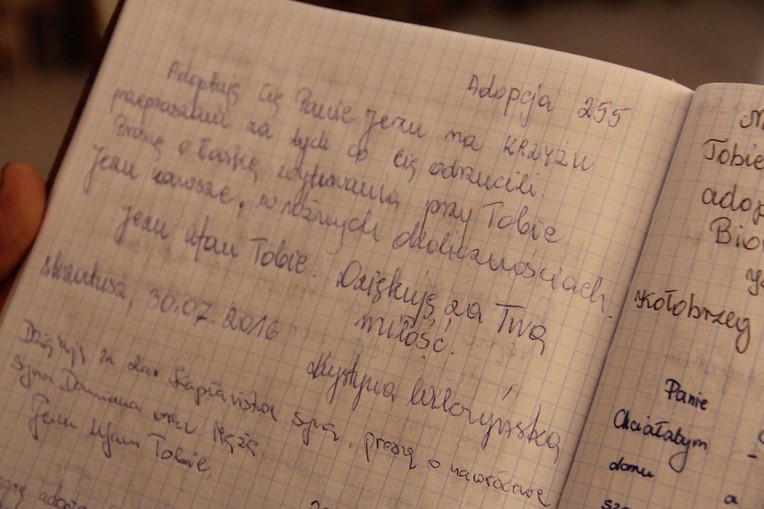 Adopcja 255
Adoptuję Cię Panie Jezu na KRZYŻU
przepraszam za tych co Cię odrzucili.
Proszę o łaskę wytrwania przy Tobie
Jezu zawsze, w różnych okolicznościach.
Jezu ufam Tobie. Dziękuję za Twą
miłość.
Skrzatusz, 30.07.2016
Krystyna
Dziękuję za dar Kapłaństwa syna, proszę o nawrócenie
syna Damiana oraz męża.
Jezu Ufam Tobie.
Tobie
adop
Kołobrzeg
Panie
Chciałabym
domu
a